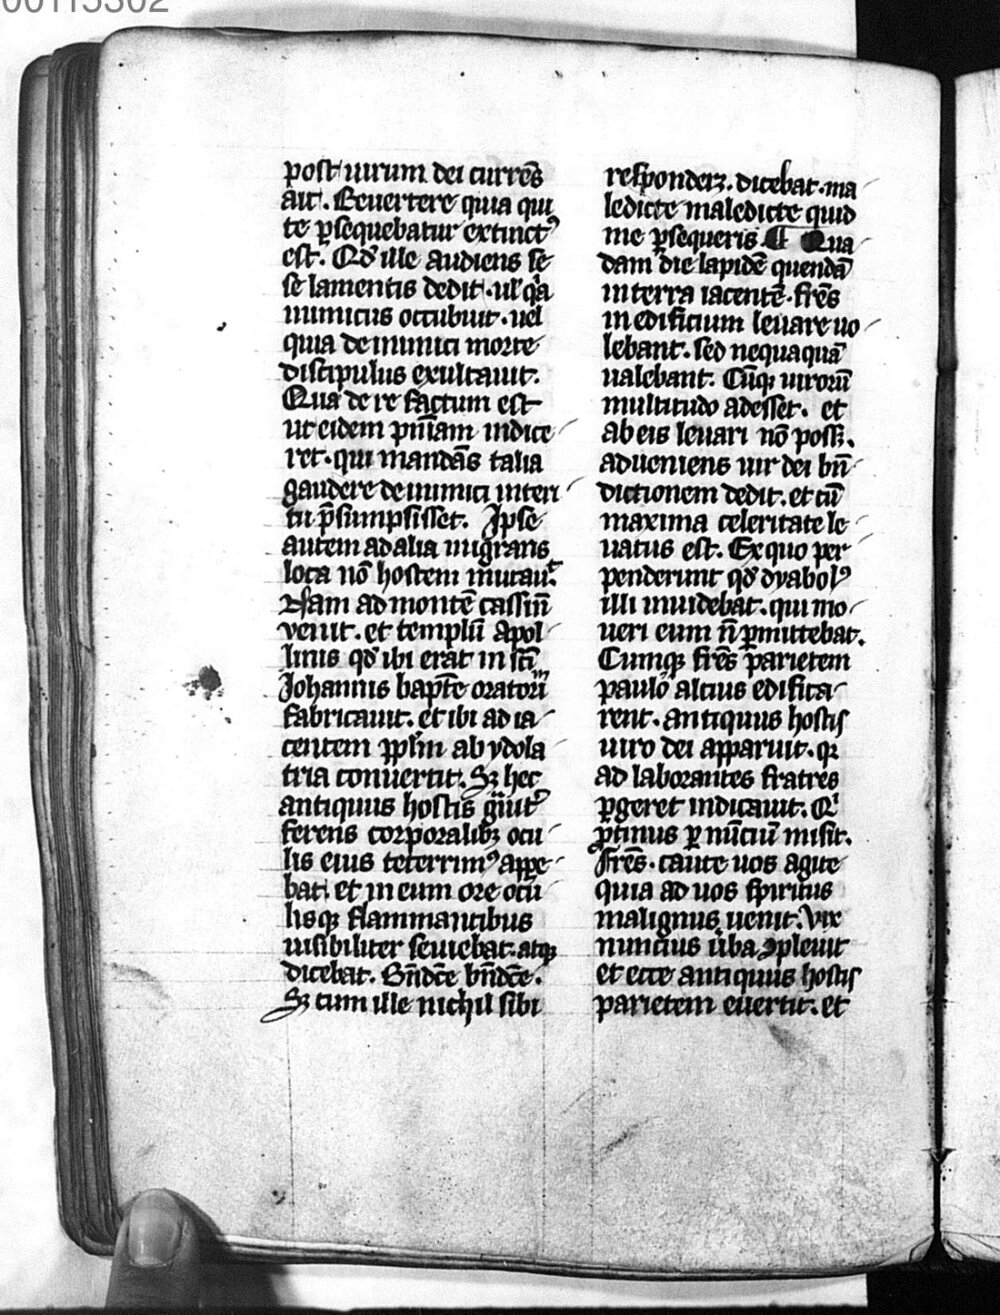 00115302
post uirum dei currēs
ait. Reuertere quia qui
te ꝑsequebatur extinctꝰ
est. Qd̛ ille audiens se
se lamentis dedit. ul̛ qͣa
inimicus occubuit. uel
quia de inimici morte
discipulus exultauit.
Qua de re factum est
ut eidem pn̄iam indice
ret. qui mandās talia
gaudere de inimici interi
tu p̄sumpsisset. Ipse
autem ad alia migrans
loca nō hostem mutauͭ.
Nam ad montē cassin̄
venit. et templū apol
linis qd̛ ibi erat in sc̄i
Johannis bapt̄e oratoriū
fabricauit. et ibi ad ia
centem ppl̄m ab ydola
tria conuertit. Sꝫ hec
antiquus hostis gͣuitꝰ
ferens corporalibꝫ ocu
lis eius teterrimꝰ appe
bat. et in eum ore ocu
lisqꝫ flammantibus
uisibiliter seuiebat. atqꝫ
dicebat. Bn̄dc̄e bn̄dc̄e.
Sꝫ cum ille nichil sibi
responderꝫ. dicebat. ma
ledicte maledicte quid
me ꝑsequeris. ¶ Qua
dam die lapidē quendā
in terra iacentē. fr̄es
in edificium leuare uo
lebant. sed nequaquā
ualebant. Cūqꝫ uirorū
multitudo adesset. et
ab eis leuari nō possꝫ.
adueniens uir dei bn̄
dictionem dedit. et cū
maxima celeritate le
uatus est. Ex quo per
penderunt qd̛ dyabolꝰ
illi inuidebat. qui mo
ueri eum n̄ ꝑmittebat.
Cumqꝫ fr̄es parietem
paulo altius edifica
rent. antiquus hostis
uiro dei apparuit. qꝫ
ad laborantes fratres
ꝑgeret indicauit. Qͥ
ꝓtinus ꝑ nūciū misit.
fr̄es. caute uos agite
quia ad uos spiritus
malignus uenit. Vix
nuncius ūba ꝯpleuit
et ecce antiquus hostis
parietem euertit. et